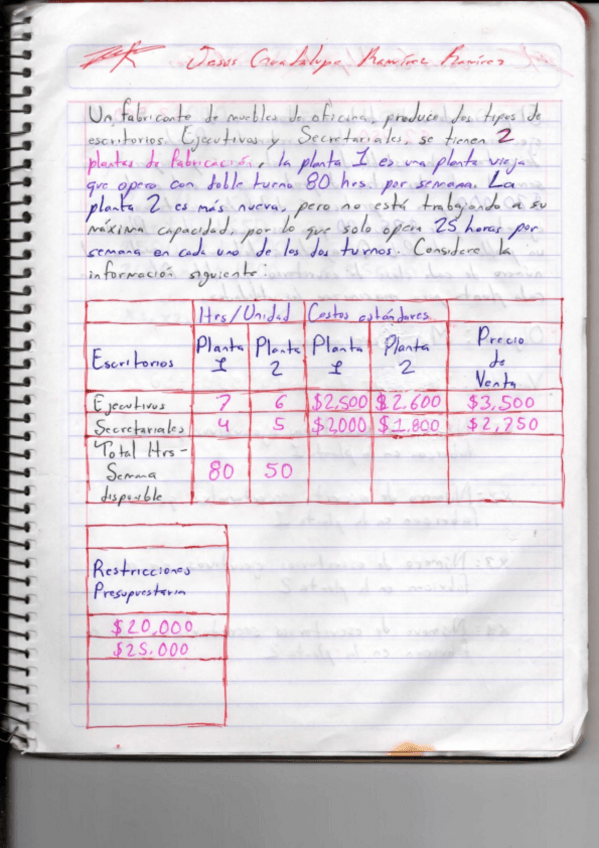 Jesus Guadalupe Ramirez Ramirez
Un fabricante de muebles de oficina, produce dos tipos de
escritorios Ejecutivos y Secretariales, se tienen 2
plantas de fabricación, la planta 1 es una planta vieja
que opera con doble turno 80 hrs por semana. La
planta 2 es más nueva, pero no está trabajando a su
máxima capacidad, por lo que solo opera 25 horas por
semana en cada uno de los dos turnos. Considere la
información siguiente:
Hrs/Unidad Costos estándares
Escritorios Planta 1 Planta 2 Planta 1 Planta 2 Precio de Venta
Ejecutivos 7 6 $2,500 $2,600 $3,500
Secretariales 4 5 $2000 $1,800 $2,750
Total Hrs-
Semana 80 50
disponible
Restricciones
Presupuestaria
$20,000
$25.000